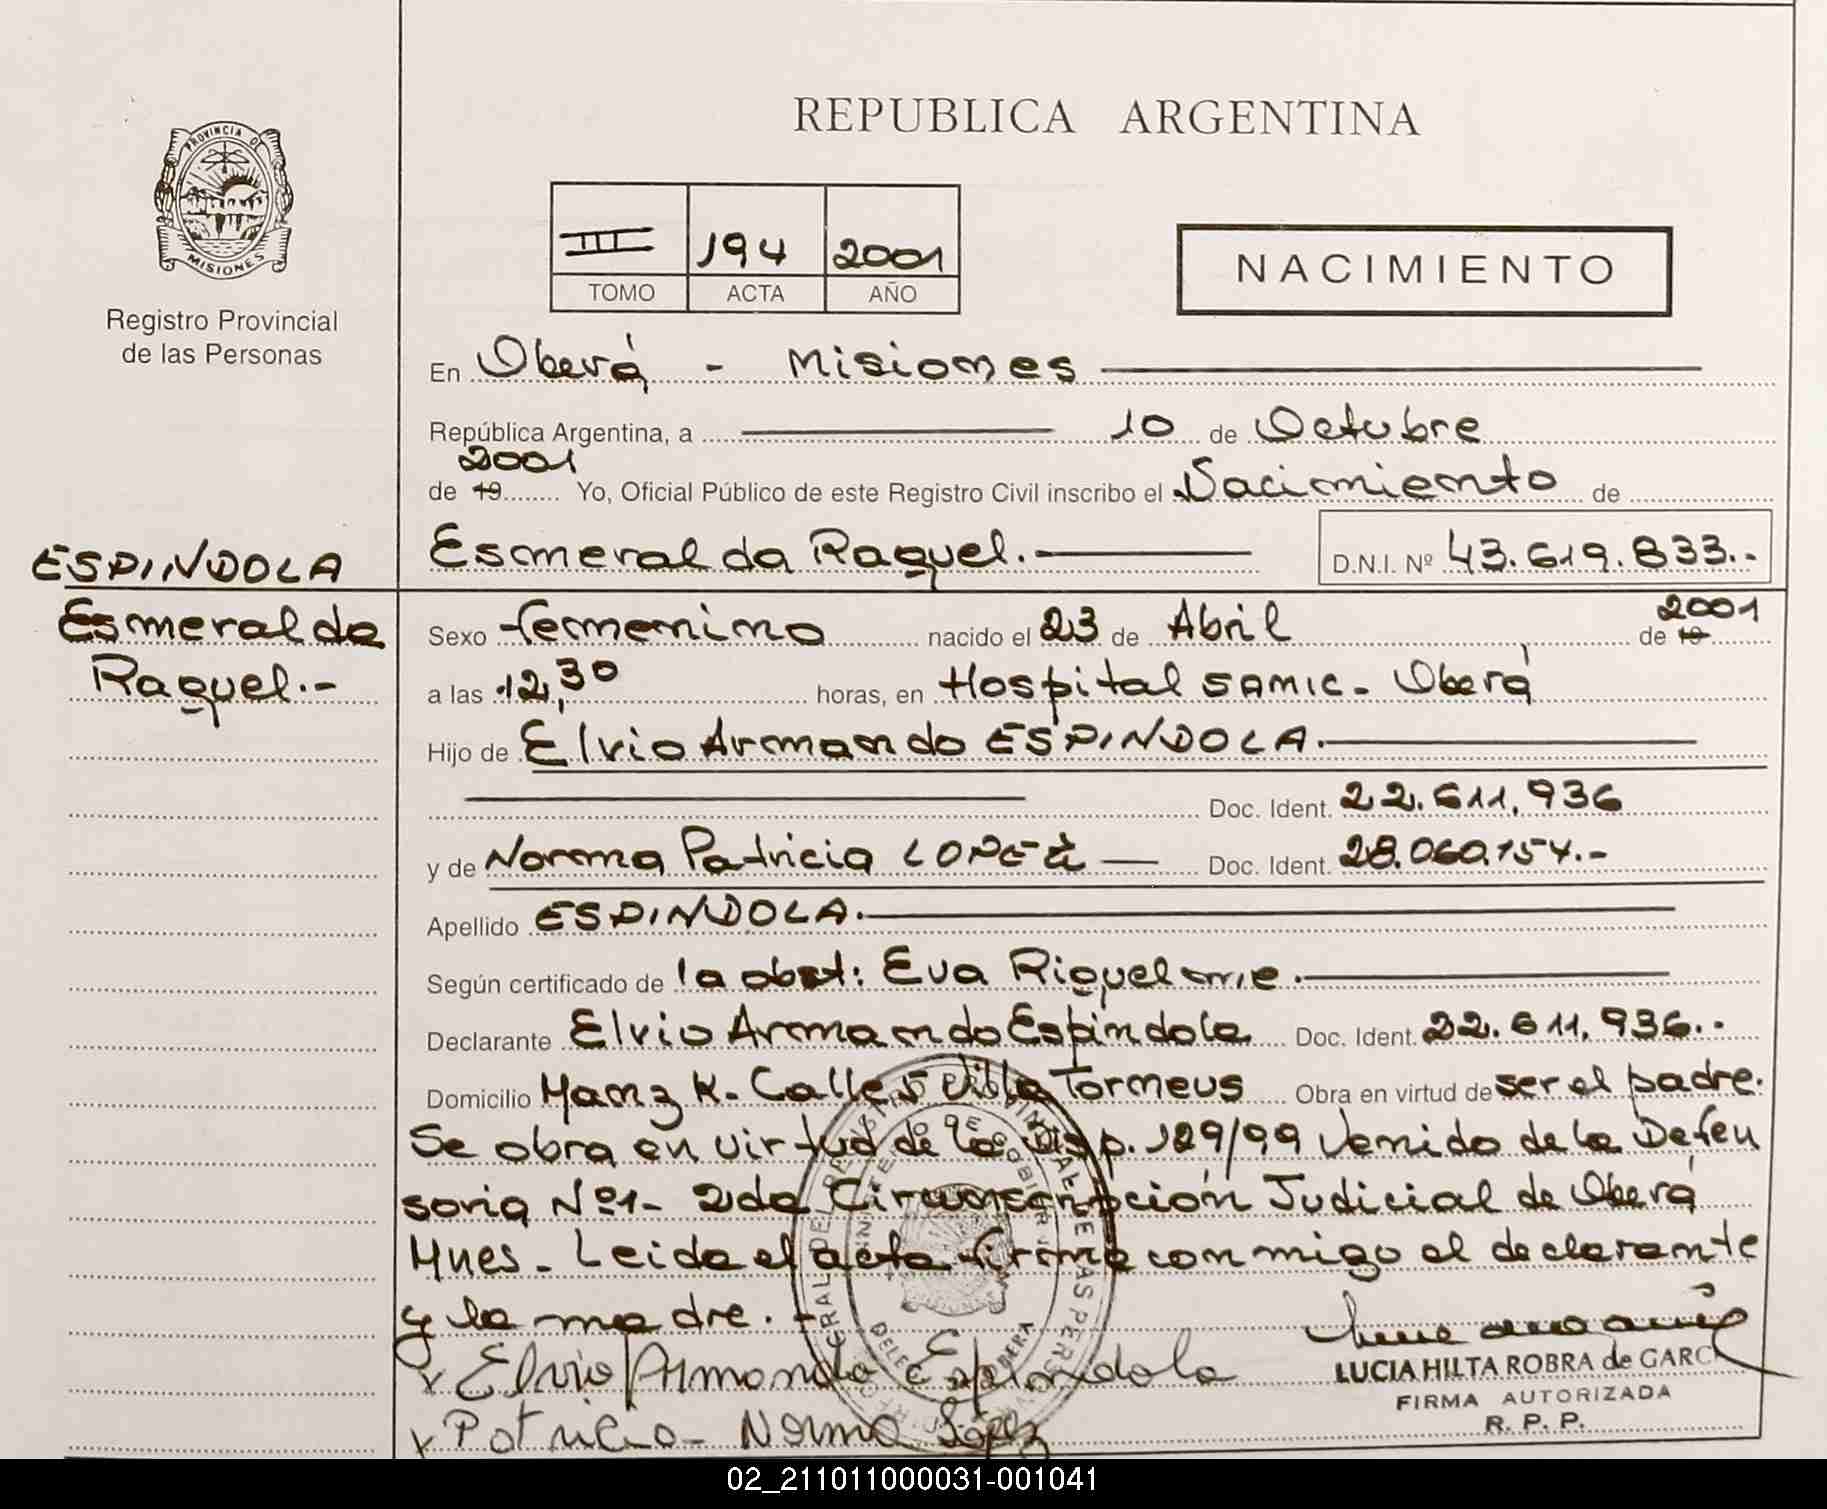 REPUBLICA ARGENTINA
PROVINCIA DE
MISIONES
Registro Provincial
de las Personas
III 194 2001
TOMO ACTA AÑO
NACIMIENTO
En Oberá - Misiones
República Argentina, a 10 de Octubre
2001
de 19 Yo, Oficial Público de este Registro Civil inscribo el Nacimiento de
ESPINDOLA
Esmeralda Raquel.-
Esmeralda Raquel. D.N.I. Nº 43.619.833.-
Sexo femenino nacido el 23 de Abril de 19 2001
a las 12,30 horas, en Hospital SAMIC - Oberá
Hijo de Elvio Armando ESPINDOLA.
Doc. Ident. 22.611.936
y de Norma Patricia LOPEZ Doc. Ident. 28.060.154.-
Apellido ESPINDOLA.
Según certificado de la obst: Eva Riquelme.
Declarante Elvio Armando Espíndola Doc. Ident. 22.611.936.-
Domicilio Manz K. Calle 5 Villa Torneus Obra en virtud de ser el padre.
Se obra en virtud de la Disp. 129/99 Venido de la Defen
soria Nº1- 2da Circunscripción Judicial de Oberá
Mnes. Leida el acta firma conmigo el declarante
y la madre.-
x Elvio Armando Espindola
x Patricia - Norma López
LUCIA HILTA ROBRA de GARC
FIRMA AUTORIZADA
R. P. P.
02_211011000031-001041